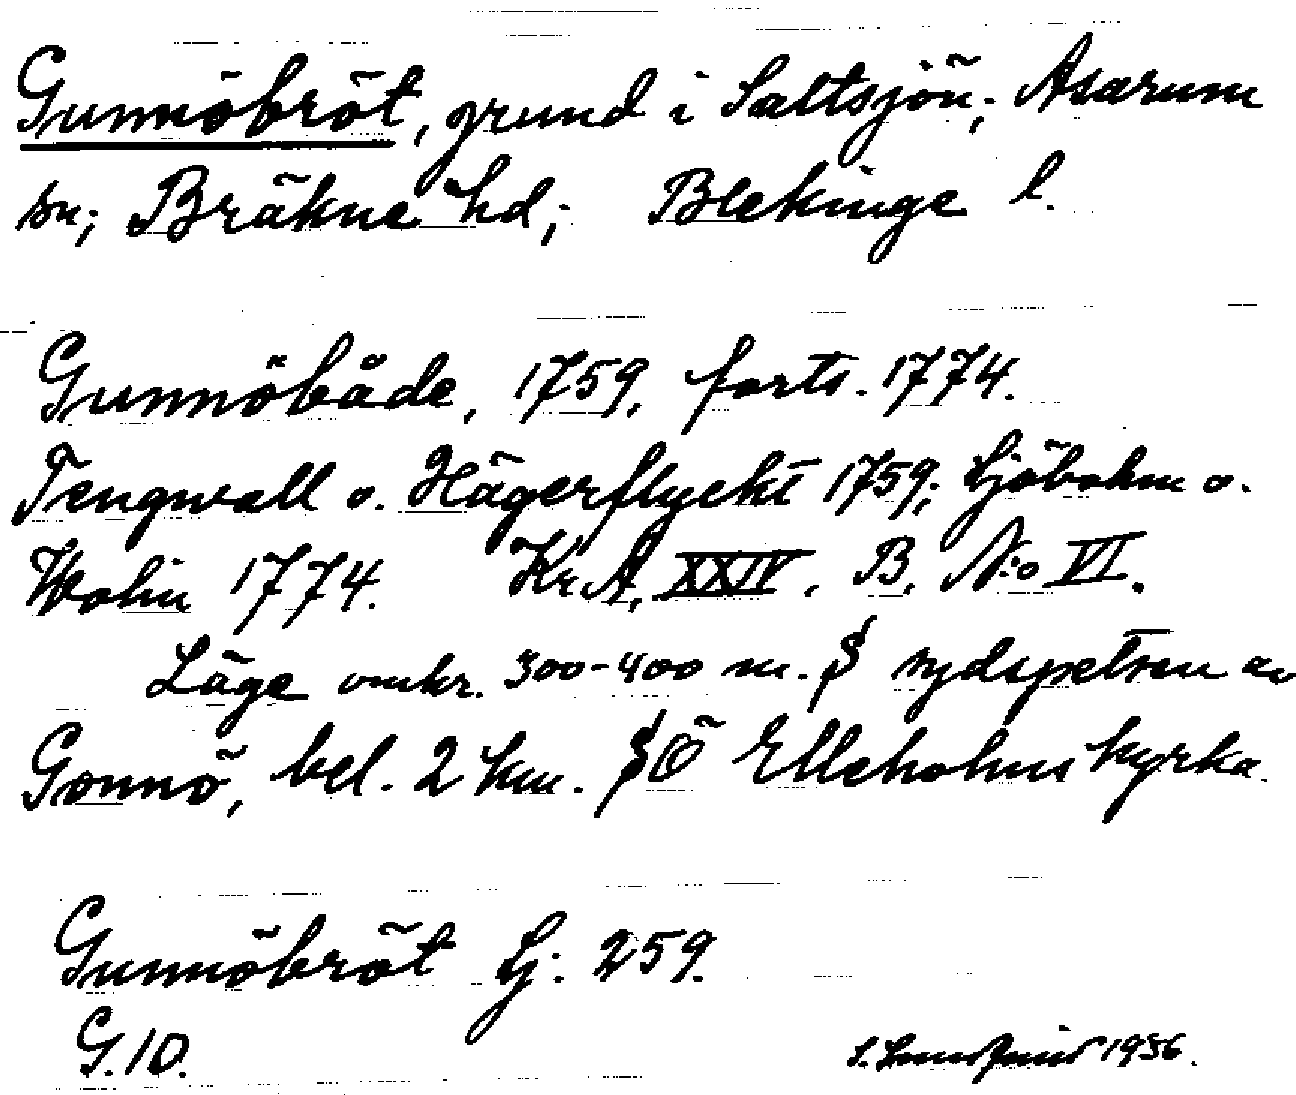 Gunnöbröt, grund i Saltsjön; Asarum
sn; Bräkne hd; Blekinge l.
Gunnöbåde, 1759, forts. 1774.
Tengwall o. Hägerflyckt 1759; Ljöbohm o.
Wolin 1774. Kr.A. XXIV. B. N:o VI.
Läge omkr. 300-400 m. S sydspetsen av
Gonnö, bel. 2 km. SÖ Elleholms kyrka.
Gunnöbröt Lj. 259.
G.10.
1956.